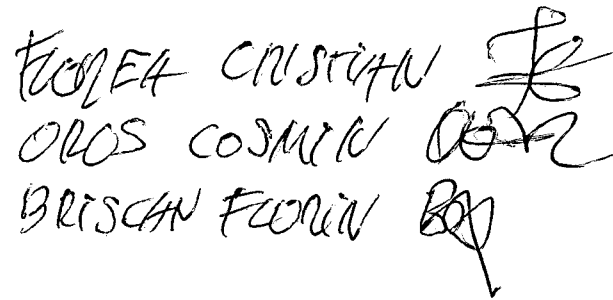 FLOREA CRISTIAN
OROS COSMIN
BRISCAN FLORIN